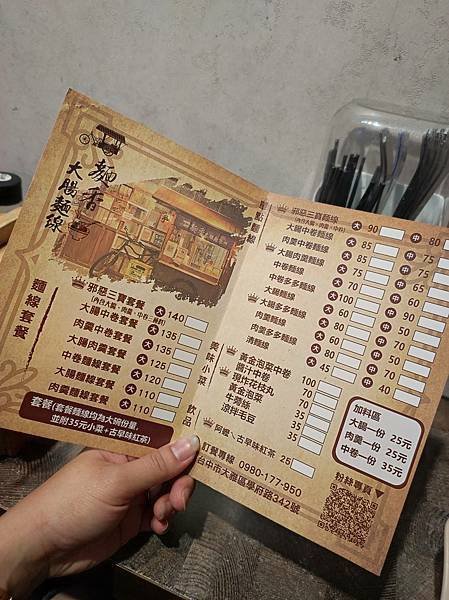 麵香
大腸麵線
麵線套餐
邪惡三寶套餐 大 140
(內含大腸、肉羹、中卷三種料)
大腸中卷套餐 大 135
肉羹中卷套餐 大 135
大腸肉羹套餐 大 125
中卷麵線套餐 大 120
大腸麵線套餐 大 110
肉羹麵線套餐 大 110
套餐(套餐麵線均為大碗份量,
並附35元小菜+古早味紅茶)
單點麵線
邪惡三寶麵線 大 90 中 80
(內含大腸、肉羹、中卷)
大腸中卷麵線 大 85 中 75
肉羹中卷麵線 大 85 中 75
大腸肉羹麵線 大 75 中 65
中卷麵線 大 70 中 60
中卷多多麵線 大 100 中 90
大腸麵線 大 60 中 50
大腸多多麵線 大 80 中 70
肉羹麵線 大 60 中 50
肉羹多多麵線 大 80 中 70
清麵線 大 45 中 40
美味小菜
黃金泡菜中卷 100
醬汁中卷 70
現炸花枝丸 70
黃金泡菜 35
牛蒡絲 35
涼拌毛豆 35
飲品
阿嬤ㄟ古早味紅茶 25
加料區
大腸一份 25元
肉羹一份 25元
中卷一份 35元
訂餐專線 0980-177-950
台中市大雅區學府路342號
粉絲專頁▼